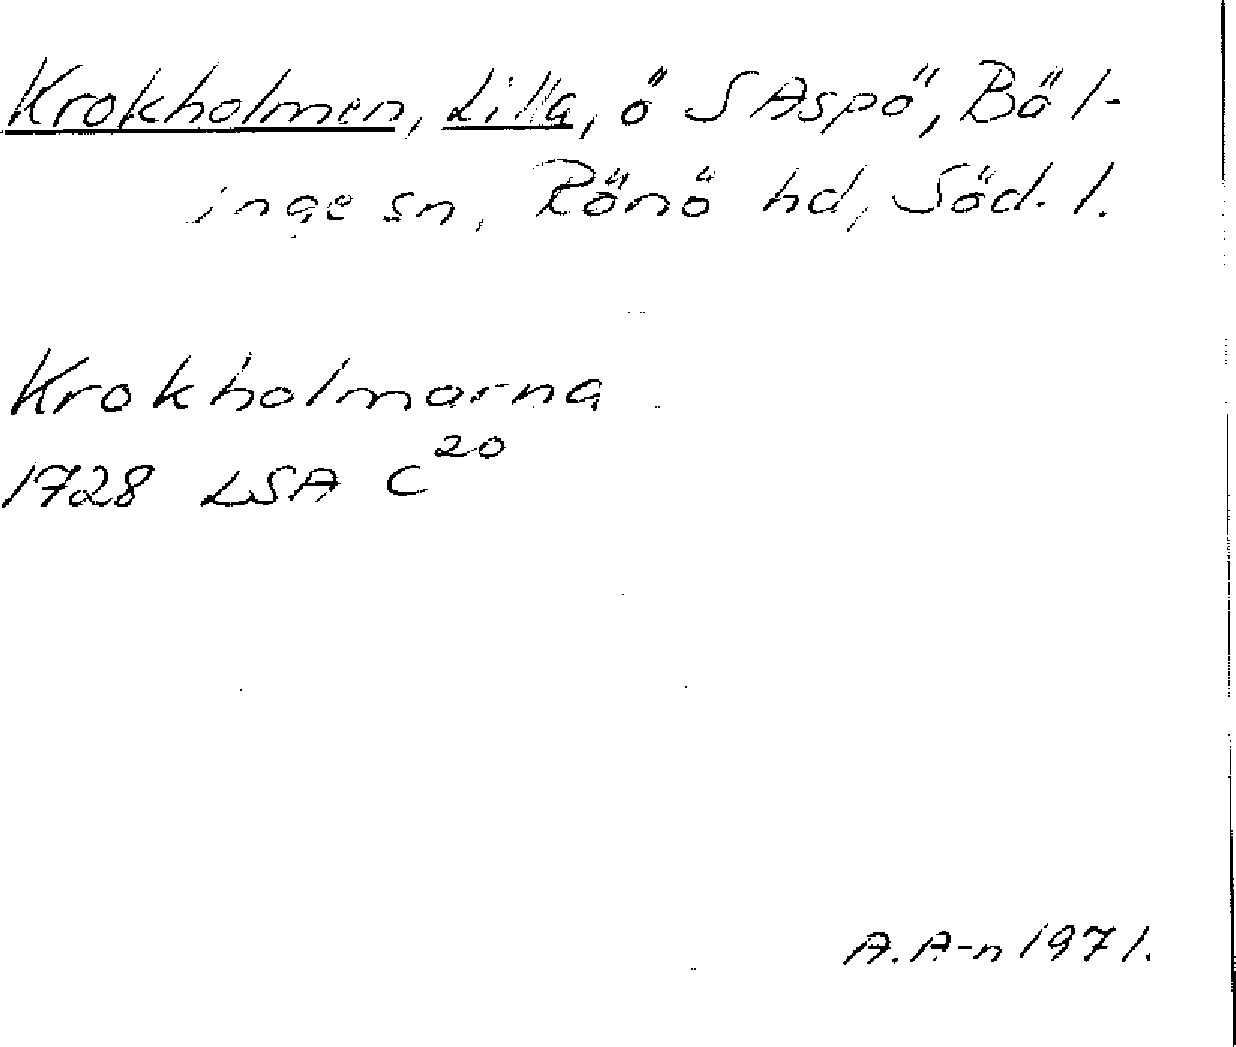 Krokholmen, Lilla, ö S Aspö, Bäl-
inge sn, Rönö hd, Söd. l.
Krokholmarna
1728 LSA C²⁰
A. A-n 1971.